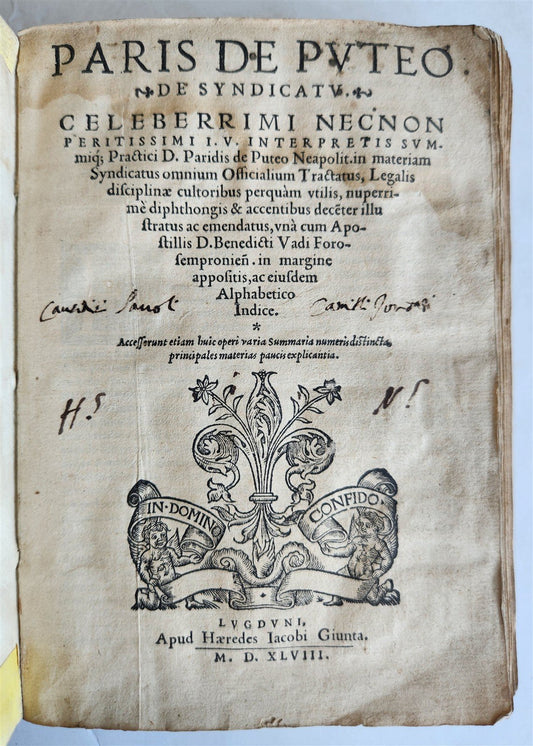 PARIS DE PVTEO
DE SYNDICATV.
CELEBERRIMI NECNON
PERITISSIMI I.V. INTERPRETIS SVM-
miq; Practici D. Paridis de Puteo Neapolit. in materiam
Syndicatus omnium Officialium Tractatus, Legalis
disciplinæ cultoribus perquàm vtilis, nuperri-
mè diphthongis & accentibus decẽter illu
stratus ac emendatus, vnà cum Apo-
stillis D. Benedicti Vadi Foro-
sempronień. in margine
appositis, ac eiusdem
Alphabetico
Indice.
*
Accesserunt etiam huic operi varia Summaria numeris distincta,
principales materias paucis explicantia.
H.s N.s
IN·DOMINO CONFIDO
LVGDVNI,
Apud Hæredes Iacobi Giunta.
M. D. XLVIII.